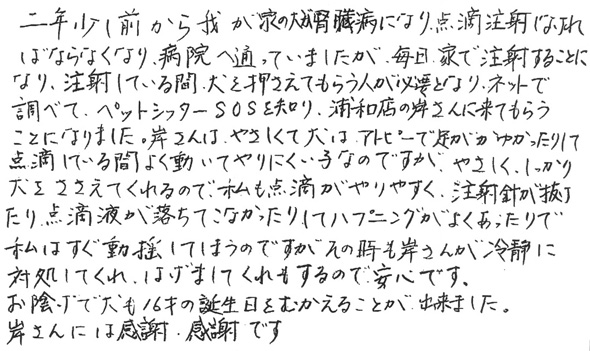 二年少し前から我が家の犬が腎臓病になり、点滴注射しなけれ
ばならなくなり、病院へ通っていましたが、毎日、家で注射することに
なり、注射している間、犬を押さえてもらう人が必要となり、ネットで
調べて、ペットシッターSOSを知り、浦和店の岸さんに来てもらう
ことになりました。岸さんは、やさしくて犬は、アトピーで足がかゆかったりして
点滴している間よく動いてやりにくい子なのですが、やさしく、しっかり
犬をささえてくれるので、私も点滴がやりやすく、注射針が抜け
たり、点滴液が落ちてこなかったりしてハプニングがよくあったりで
私はすぐ動揺してしまうのですがその時も岸さんが冷静に
対処してくれ、はげましてくれもするので、安心です。
お陰げで犬も16才の誕生日をむかえることが、出来ました。
岸さんには感謝、感謝です